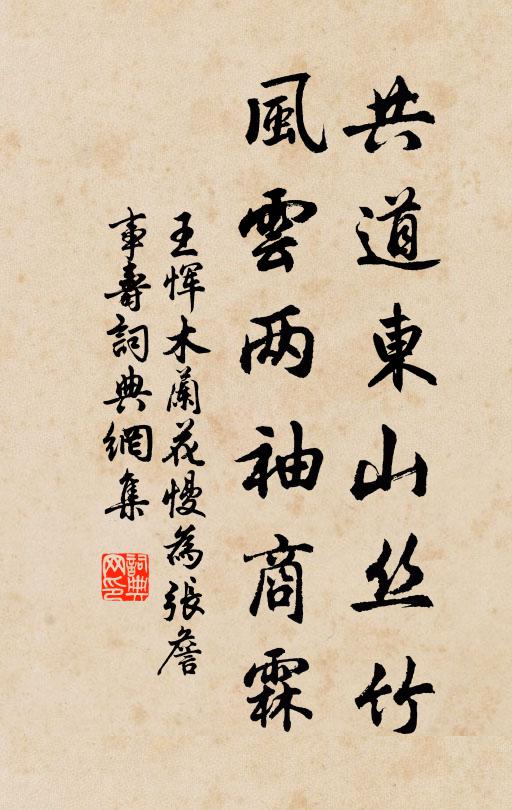 共道東山丝竹
風雲两袖商霖
王惲木蘭花慢為張詹
事壽詞典網集
詞典
网印